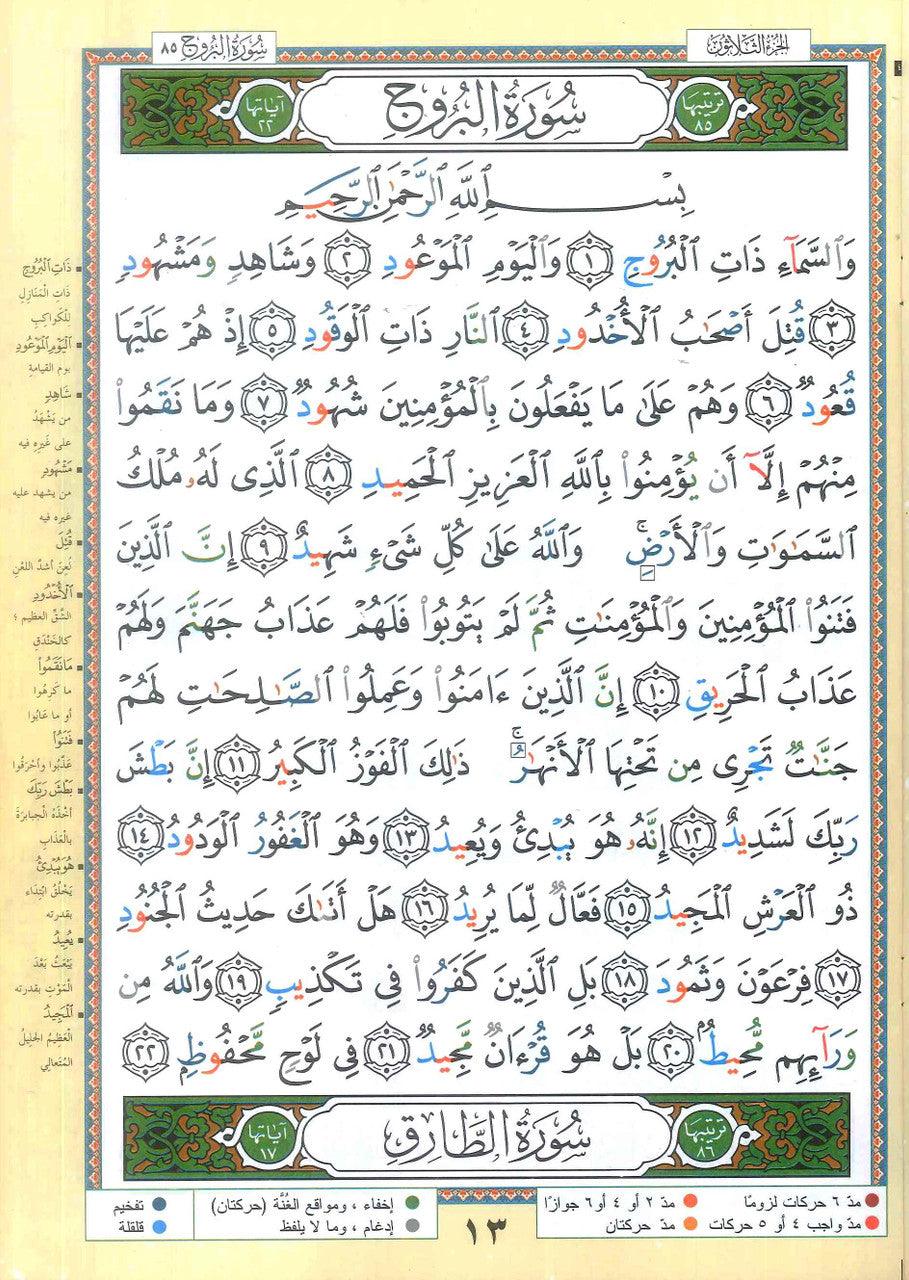 الجزء الثلاثون
سورة البروج ٨٥
ترتيبها ٨٥
سُورَةُ البُرُوجِ
آياتها ٢٢
بِسْمِ ٱللَّهِ ٱلرَّحْمَٰنِ ٱلرَّحِيمِ
وَٱلسَّمَآءِ ذَاتِ ٱلْبُرُوجِ ١ وَٱلْيَوْمِ ٱلْمَوْعُودِ ٢ وَشَاهِدٍ وَمَشْهُودٍ
٣ قُتِلَ أَصْحَٰبُ ٱلْأُخْدُودِ ٤ ٱلنَّارِ ذَاتِ ٱلْوَقُودِ ٥ إِذْ هُمْ عَلَيْهَا
قُعُودٌ ٦ وَهُمْ عَلَىٰ مَا يَفْعَلُونَ بِٱلْمُؤْمِنِينَ شُهُودٌ ٧ وَمَا نَقَمُوا۟
مِنْهُمْ إِلَّآ أَن يُؤْمِنُوا۟ بِٱللَّهِ ٱلْعَزِيزِ ٱلْحَمِيدِ ٨ ٱلَّذِى لَهُۥ مُلْكُ
ٱلسَّمَٰوَٰتِ وَٱلْأَرْضِ ۚ وَٱللَّهُ عَلَىٰ كُلِّ شَىْءٍ شَهِيدٌ ٩ إِنَّ ٱلَّذِينَ
فَتَنُوا۟ ٱلْمُؤْمِنِينَ وَٱلْمُؤْمِنَٰتِ ثُمَّ لَمْ يَتُوبُوا۟ فَلَهُمْ عَذَابُ جَهَنَّمَ وَلَهُمْ
عَذَابُ ٱلْحَرِيقِ ١٠ إِنَّ ٱلَّذِينَ ءَامَنُوا۟ وَعَمِلُوا۟ ٱلصَّٰلِحَٰتِ لَهُمْ
جَنَّٰتٌ تَجْرِى مِن تَحْتِهَا ٱلْأَنْهَٰرُ ۚ ذَٰلِكَ ٱلْفَوْزُ ٱلْكَبِيرُ ١١ إِنَّ بَطْشَ
رَبِّكَ لَشَدِيدٌ ١٢ إِنَّهُۥ هُوَ يُبْدِئُ وَيُعِيدُ ١٣ وَهُوَ ٱلْغَفُورُ ٱلْوَدُودُ ١٤
ذُو ٱلْعَرْشِ ٱلْمَجِيدُ ١٥ فَعَّالٌ لِّمَا يُرِيدُ ١٦ هَلْ أَتَىٰكَ حَدِيثُ ٱلْجُنُودِ
١٧ فِرْعَوْنَ وَثَمُودَ ١٨ بَلِ ٱلَّذِينَ كَفَرُوا۟ فِى تَكْذِيبٍ ١٩ وَٱللَّهُ مِن
وَرَآئِهِم مُّحِيطٌۢ ٢٠ بَلْ هُوَ قُرْءَانٌ مَّجِيدٌ ٢١ فِى لَوْحٍ مَّحْفُوظٍۭ ٢٢
ترتيبها ٨٦
سُورَةُ الطَّارِقِ
آياتها ١٧
ذَاتِ ٱلْبُرُوجِ
ذات المَنازلِ
للكواكِبِ
ٱلْيَوْمِ ٱلْمَوْعُودِ
يوم القيامةِ
شَاهِدٍ
من يَشْهَدُ
على غَيرِه فيه
مَشْهُودٍ
من يشهد عليه
غيره فيه
قُتِلَ
لُعِنَ أشدَّ اللعْنِ
ٱلْأُخْدُودِ
الشَّقِّ العظيمِ ؛
كالخَنْدَقِ
مَا نَقَمُوا۟
ما كَرِهُوا
أو ما عَابُوا
فَتَنُوا۟
عَذَّبُوا وأحْرَقوا
بَطْشَ رَبِّكَ
أخْذَهُ الجبابرةَ
بالعَذَابِ
هُوَ يُبْدِئُ
يَخْلُقُ ابْتِدَاء
بقدرته
يُعِيدُ
يَبْعَثُ بَعْدَ
المَوْتِ بقدرته
ٱلْمَجِيدُ
العَظِيمُ الجليلُ
المُتعالِي
مدّ ٦ حركات لزوماً
مدّ ٢ أو ٤ أو ٦ جوازاً
إخفاء ، ومواقع الغُنَّة (حركتان)
تفخيم
مدّ واجب ٤ أو ٥ حركات
مدّ حركتان
إدغام ، وما لا يلفظ
قلقلة
١٣